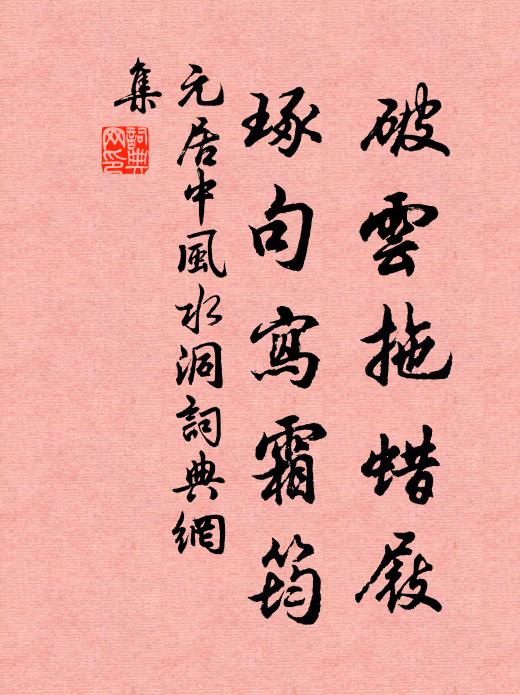 破雲拖蜡屐
琢句寫霜筠
元居中風水洞詞典網
集
詞典網印